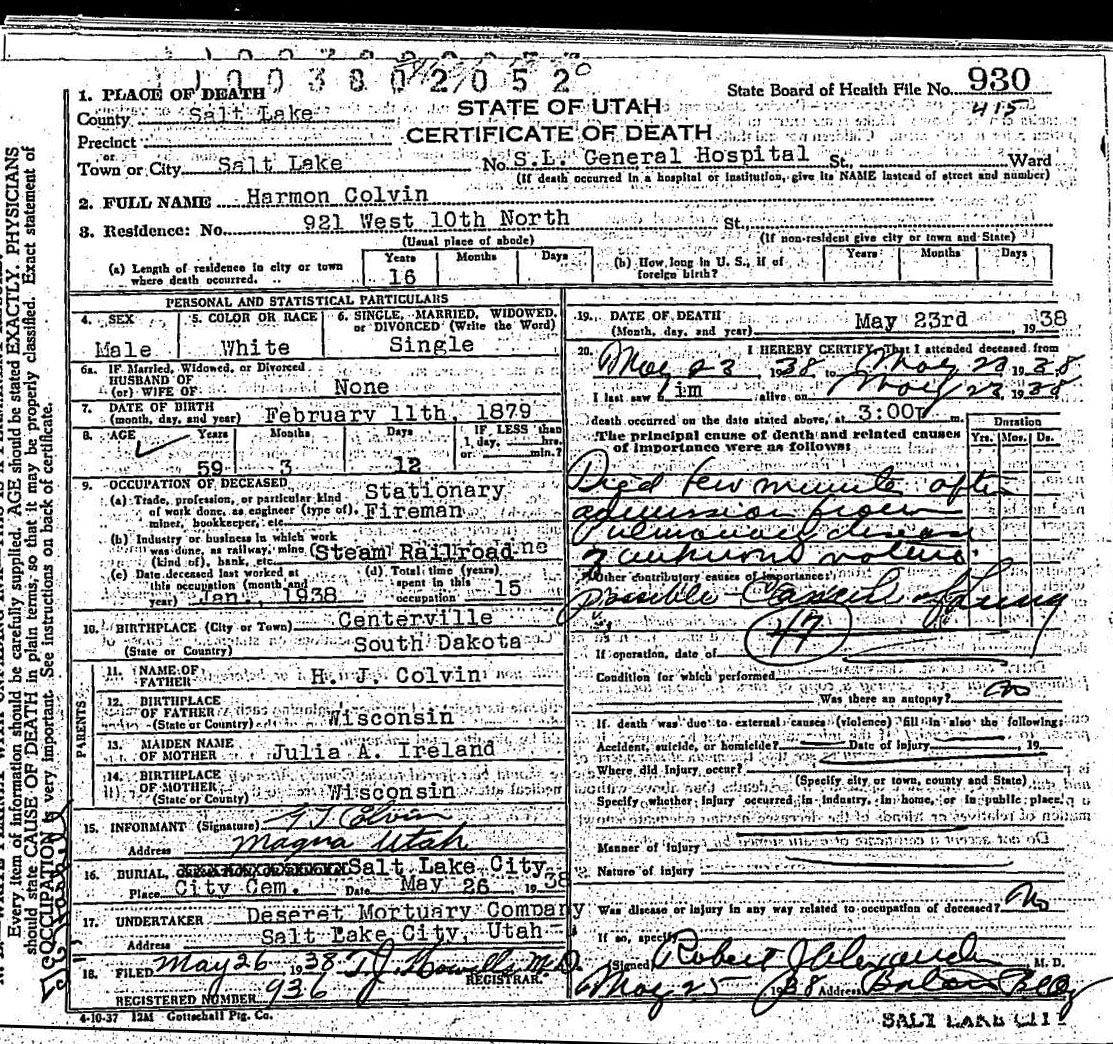 1 0 0 3 8 0 2 0 5 2
State Board of Health File No. 930
415
1. PLACE OF DEATH
STATE OF UTAH
County Salt Lake
CERTIFICATE OF DEATH
Precinct
or
Town or City Salt Lake No. S.L. General Hospital St. Ward
(If death occurred in a hospital or institution, give its NAME instead of street and number)
2. FULL NAME Harmon Colvin
3. Residence: No. 921 West 10th North St.
(Usual place of abode) (If non-resident give city or town and State)
(a) Length of residence in city or town where death occurred. Years 16 Months Days
(b) How long in U. S., if of foreign birth? Years Months Days
PERSONAL AND STATISTICAL PARTICULARS
4. SEX Male
5. COLOR OR RACE White
6. SINGLE, MARRIED, WIDOWED, or DIVORCED (Write the Word) Single
6a. IF Married, Widowed, or Divorced
HUSBAND OF
(or) WIFE OF None
7. DATE OF BIRTH
(month, day, and year) February 11th, 1879
8. AGE Years 59 Months 3 Days 12 IF LESS than 1 day, hrs. or min.?
9. OCCUPATION OF DECEASED
(a) Trade, profession, or particular kind of work done, as engineer (type of), miner, bookkeeper, etc. Stationary Fireman
(b) Industry or business in which work was done, as railway, mine (kind of), bank, etc. Steam Railroad
(c) Date deceased last worked at this occupation (month and year) Jan., 1938
(d) Total time (years) spent in this occupation 15
10. BIRTHPLACE (City or Town) Centerville
(State or Country) South Dakota
PARENTS
11. NAME OF FATHER H. J. Colvin
12. BIRTHPLACE OF FATHER
(State or Country) Wisconsin
13. MAIDEN NAME OF MOTHER Julia A. Ireland
14. BIRTHPLACE OF MOTHER
(State or Country) Wisconsin
15. INFORMANT (Signature)
Address Magna Utah
16. BURIAL, Salt Lake City,
Place City Cem. Date May 26, 1938
17. UNDERTAKER Deseret Mortuary Company
Address Salt Lake City, Utah
18. FILED May 26 1938 T. J. Howells M.D.
REGISTRAR.
REGISTERED NUMBER 936
4-10-37 12M Gottschall Ptg. Co.
19. DATE OF DEATH
(Month, day, and year) May 23rd 1938
20. I HEREBY CERTIFY, That I attended deceased from
May 23 1938 to May 23 1938
I last saw him alive on May 23 1938
death occurred on the date stated above, at 3:00P m.
The principal cause of death and related causes of importance were as follows:
Duration
Yrs. Mos. Ds.
Died few minute after
admission from
Pulmonary disease
of unknown nature.
Other contributory causes of importance:
possible Cancer of Lung
47
If operation, date of
Condition for which performed
Was there an autopsy? no
If death was due to external causes (violence) fill in also the following:
Accident, suicide, or homicide? Date of injury 19
Where did injury occur?
(Specify city or town, county and State)
Specify whether injury occurred in industry, in home, or in public place.
Manner of injury
Nature of injury
Was disease or injury in any way related to occupation of deceased? No
If so, specify
(Signed) Robert J Alexander M. D.
May 25 1938 Address
SALT LAKE CITY
Every item of information should be carefully supplied. AGE should be stated EXACTLY. PHYSICIANS
should state CAUSE OF DEATH in plain terms, so that it may be properly classified. Exact statement of
OCCUPATION is very important. See instructions on back of certificate.